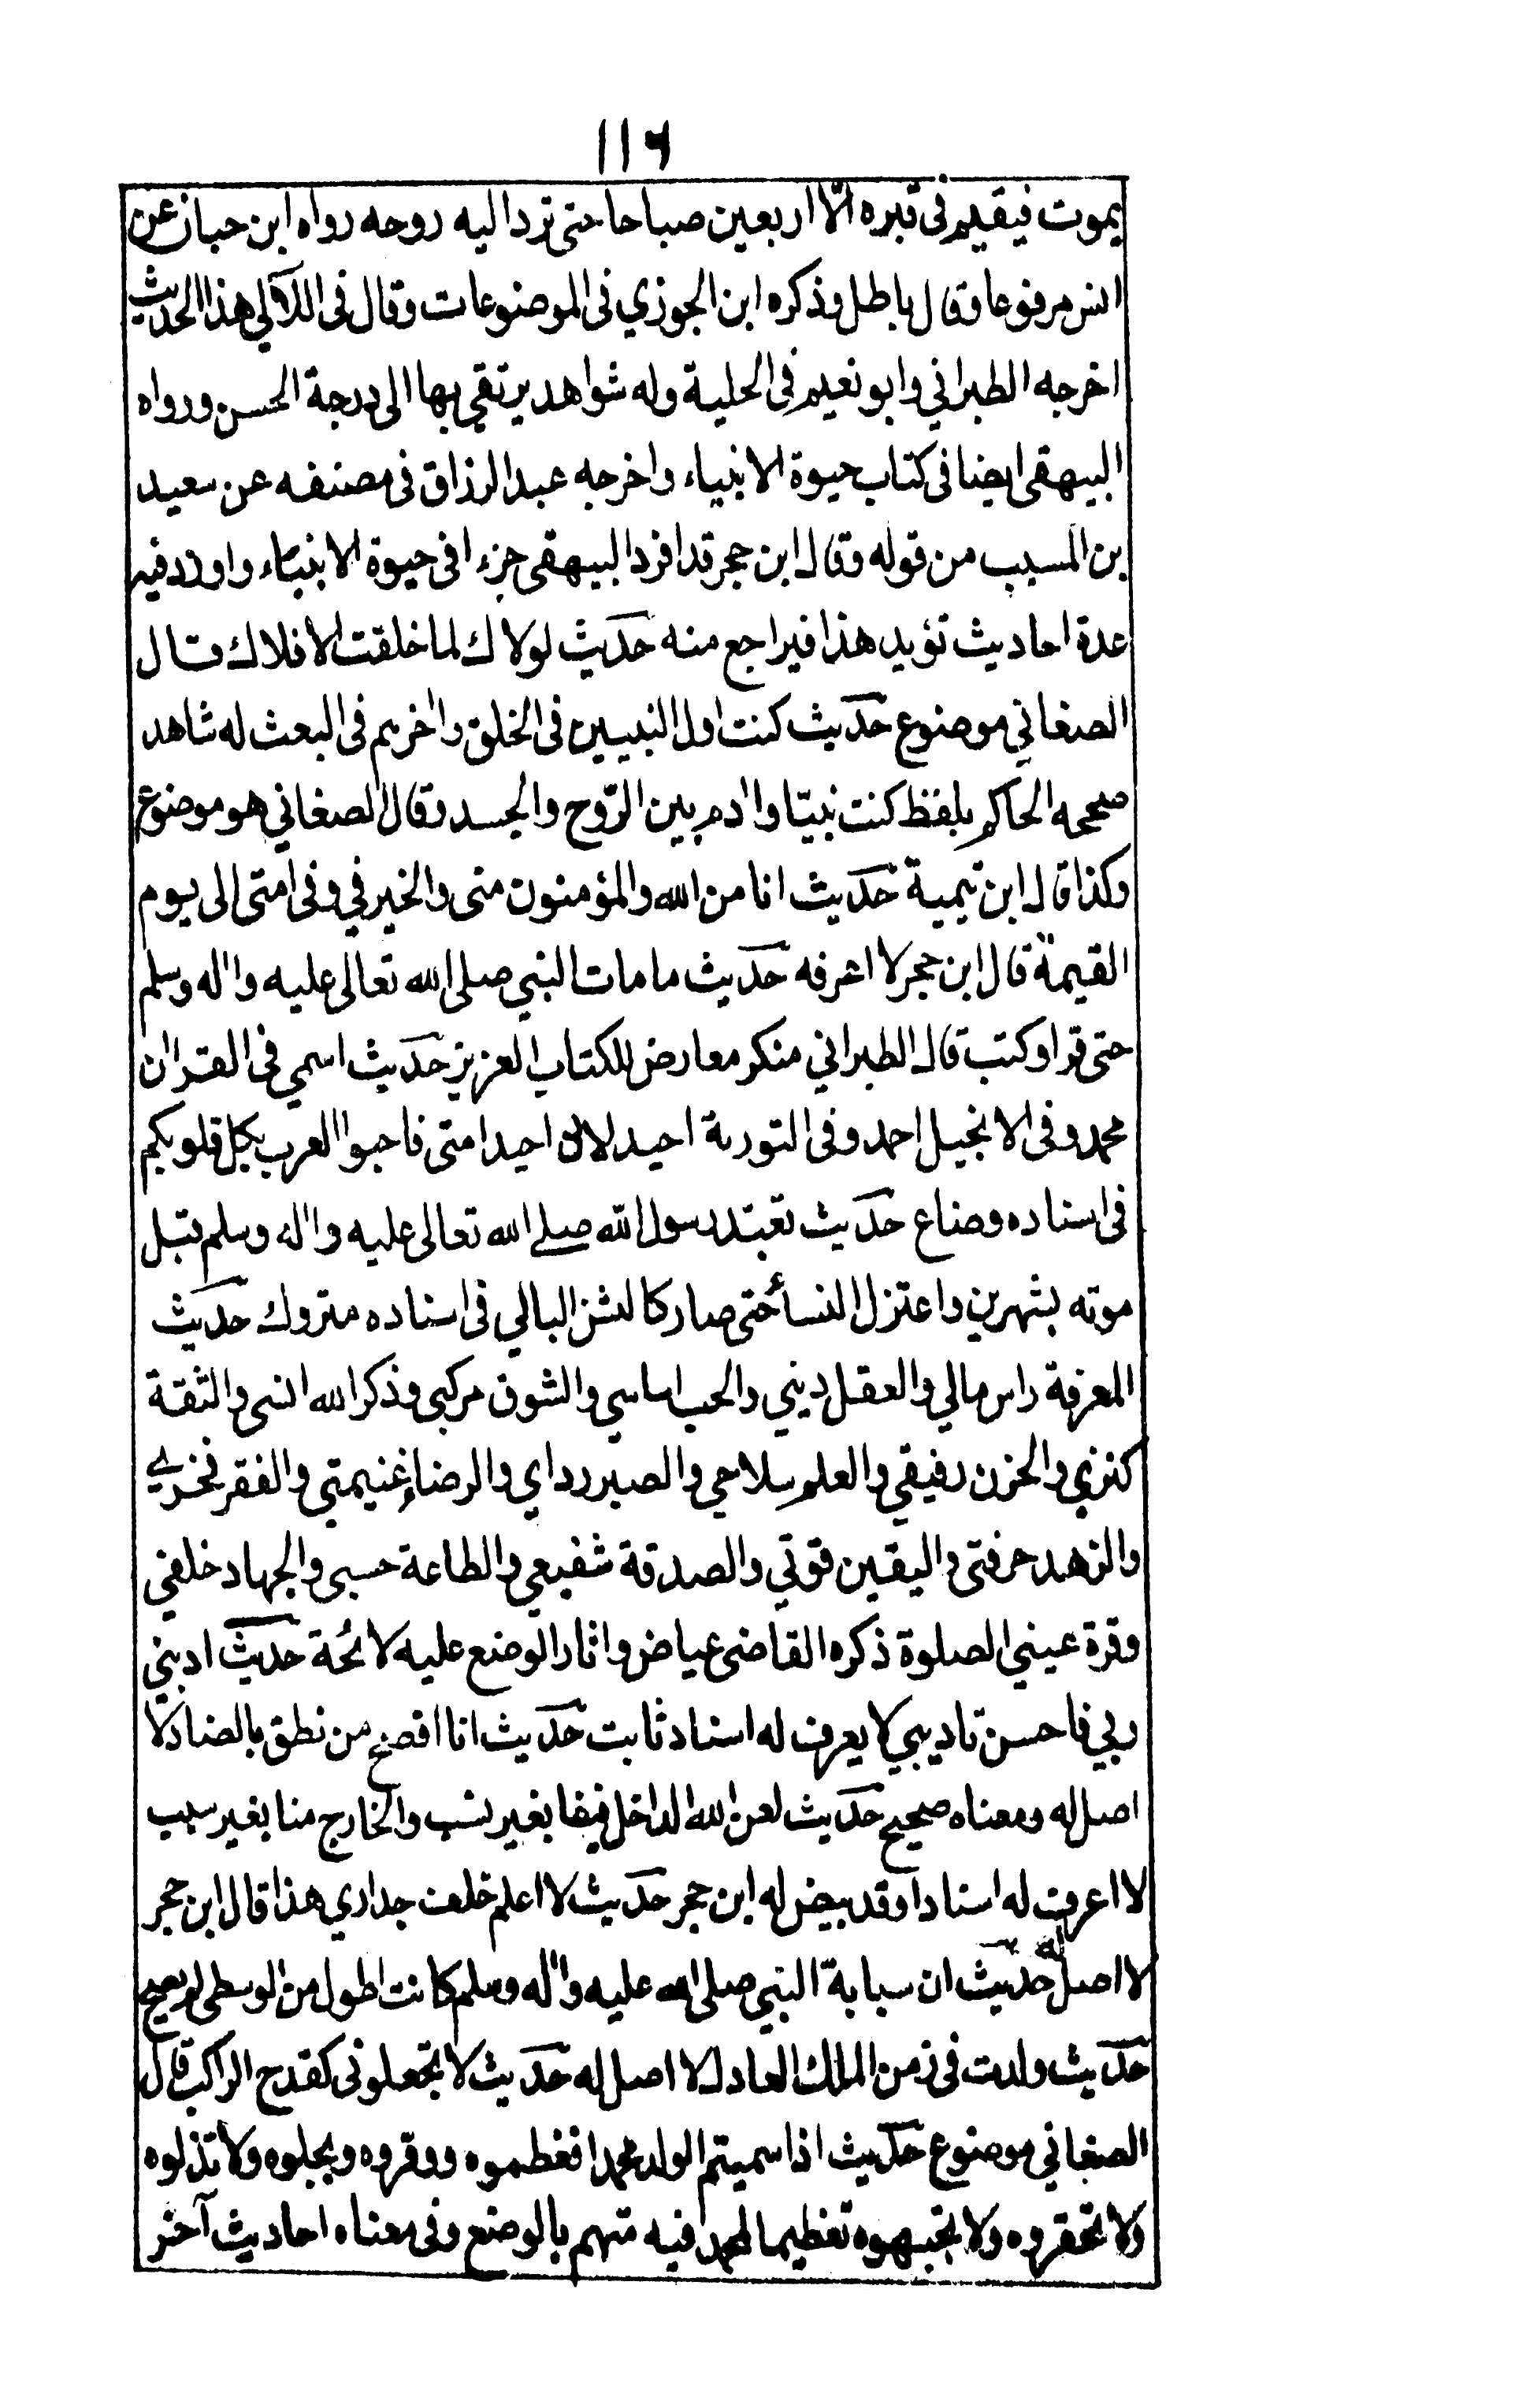 ١١٦
يموت فيقيم في قبره الّا اربعين صباحا حتى ترد اليه روحه رواه ابن حبان عن
انس مرفوعا وقال باطل وذكره ابن الجوزي في الموضوعات وقال في اللآلي هذا الحديث
اخرجه الطبراني وابو نعيم في الحلية وله شواهد يرتقي بها الى درجة الحسن ورواه
البيهقي ايضا في كتاب حيوة الانبياء واخرجه عبد الرزاق في مصنفه عن سعيد
بن المسيب من قوله وقال ابن حجر قد افرد البيهقي جزءا في حيوة الانبياء واورد فيه
عدة احاديث تؤيد هذا فيراجع منه حديث لولاك لما خلقت الافلاك قال
الصغاني موضوع حديث كنت اول النبيين في الخلق واٰخرهم في البعث له شاهد
صححه الحاكم بلفظ كنت نبيّا واٰدم بين الرّوح والجسد وقال الصغاني هو موضوع
وكذا قال ابن تيمية حديث انا من الله والمؤمنون منى والخير في وفى امتى الى يوم
القيٰمة قال ابن حجر لا اعرفه حديث ما مات النبي صلى الله تعالى عليه واٰله وسلم
حتى قرا وكتب قال الطبراني منكر معارض للكتاب العزيز حديث اسمي في القراٰن
محمد وفي الانجيل احمد وفي التورىة احيد لانى احيد امتى فاحبوا العرب بكل قلوبكم
في اسناده وضاع حديث تعبّد رسول الله صلے الله تعالى عليه واٰله وسلم قبل
موته بشهرين واعتزل النساء حتى صار كالشن البالي في اسناده متروك حديث
المعرفة راس مالي والعقل ديني والحب اساسي والشوق مركبي وذكر الله انسى والثقة
كنزي والحزن رفيقي والعلم سلاحي والصبر رداي والرضاء غنيمتي والفقر فخرے
والزهد حرفتى واليقين قوتي والصدقة شفيعي والطاعة حسبى والجهاد خلقي
وقرة عيني الصلوة ذكره القاضى عياض واثار الوضع عليه لائحة حديث ادبني
ربي فاحسن تاديبي لا يعرف له اسناد ثابت حديث انا افصح من نطق بالضاد لا
اصل له ومعناه صحيح حديث لعن الله الداخل فينا بغير نسب والخارج منا بغير سبب
لا اعرف له اسنادا وقد بيض له ابن حجر حديث لا اعلم خلف جداري هذا قال ابن حجر
لا اصل له حديث ان سبابة النبي صلى الله عليه واٰله وسلم كانت اطول من الوسطى لم يصح
حديث ولدت في زمن الملك العادل لا اصل له حديث لا تجعلونى كقدح الراكب قال
الصغاني موضوع حديث اذا سميتم الولد محمدا فعظموه ووقروه وبجلوه ولا تذلوه
ولا تحقروه ولا تجبهوه تعظيما لمحمد فيه متهم بالوضع وفى معناه احاديث آخر